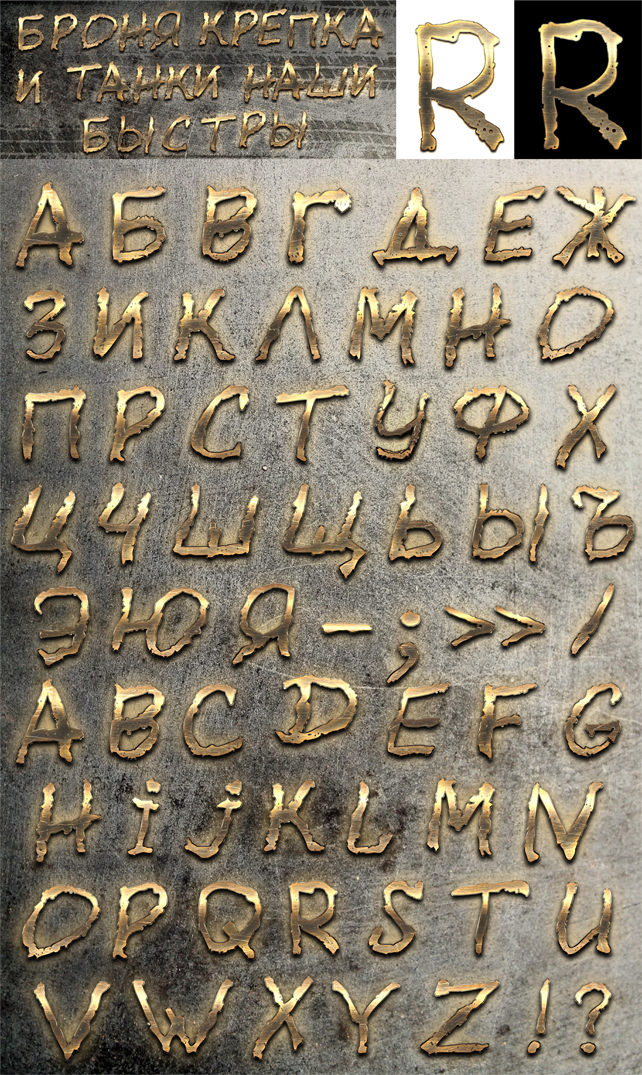 БРОНЯ КРЕПКА
И ТАНКИ НАШИ
БЫСТРЫ
R R
А Б В Г Д Е Ж
З И К Л М Н О
П Р С Т У Ф Х
Ц Ч Ш Щ Ь Ы Ъ
Э Ю Я - ; >> /
A B C D E F G
H i j K L M N
O P Q R S T U
V W X Y Z ! ?